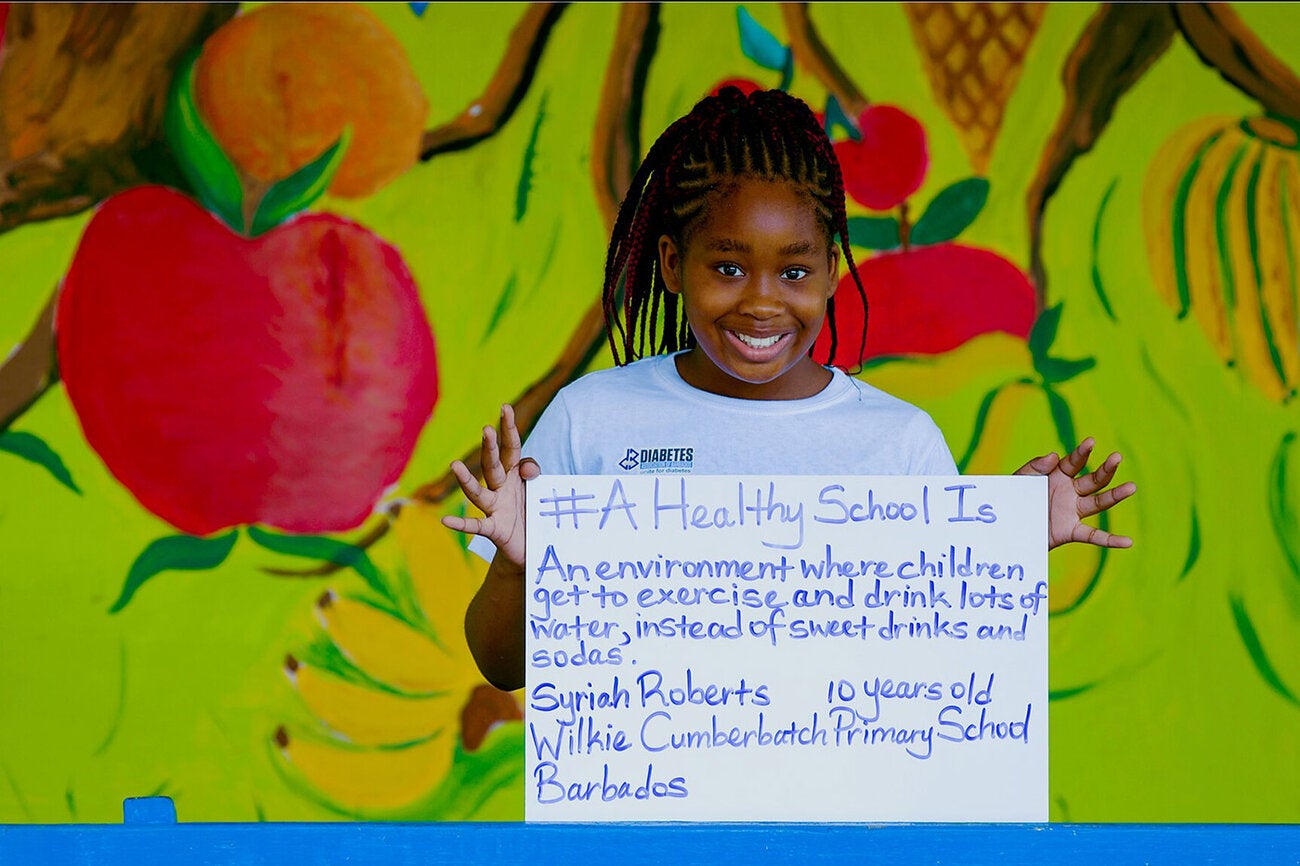 DIABETES
ASSOCIATION OF BARBADOS
unite for diabetes
#A Healthy School Is
An environment where children
get to exercise and drink lots of
water, instead of sweet drinks and
sodas.
Syriah Roberts 10 years old
Wilkie Cumberbatch Primary School
Barbados